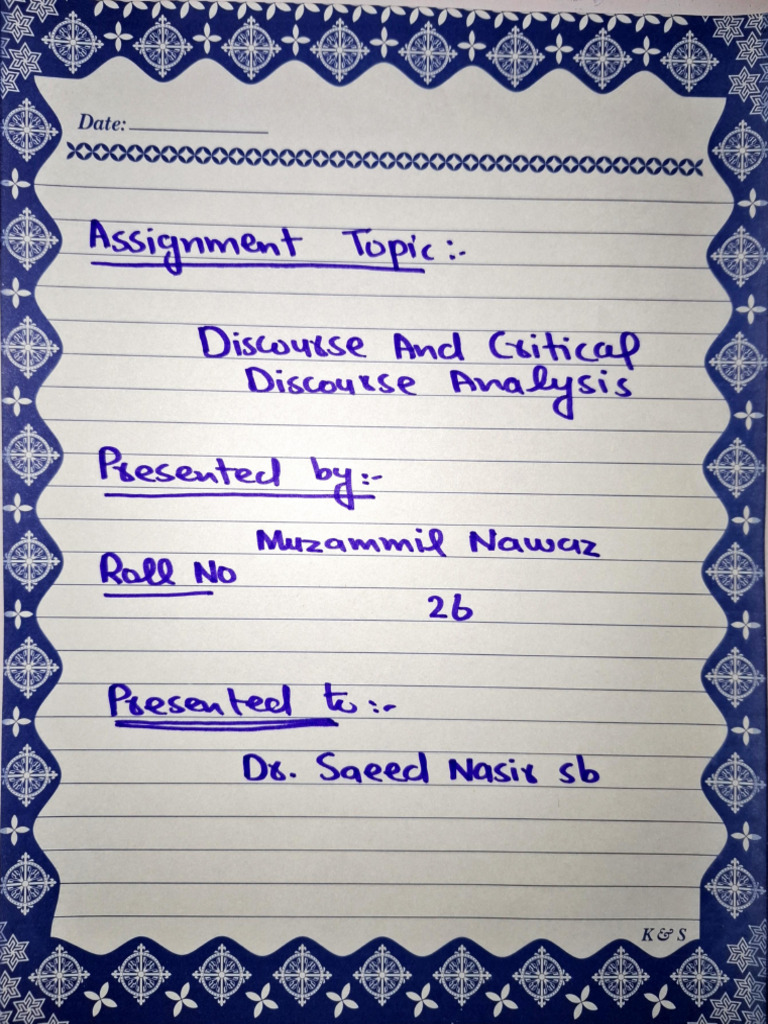 Date:
Assignment Topic:-
Discourse And Critical
Discourse Analysis
Presented by:-
Muzammil Nawaz
Roll No
26
Presented to:-
Dr. Saeed Nasir sb
K & S